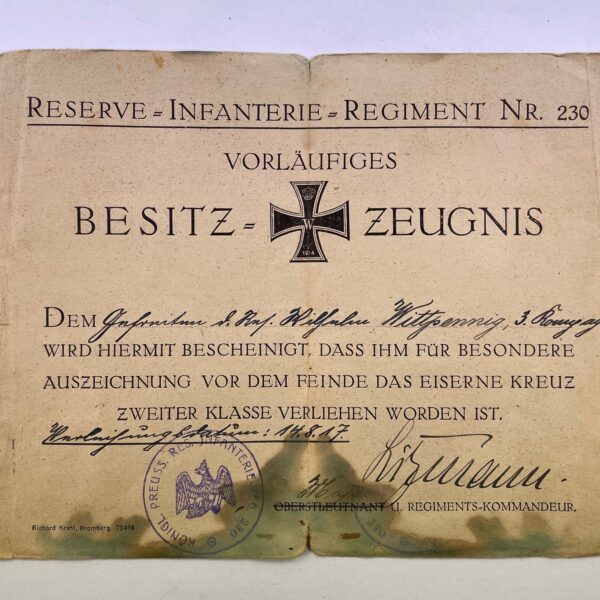 RESERVE=INFANTERIE=REGIMENT NR. 230
VORLÄUFIGES
BESITZ= W 1914 ZEUGNIS
DEM Gefreiten d. Res. Wilhelm Wittpennig, 3. Kompag
WIRD HIERMIT BESCHEINIGT, DASS IHM FÜR BESONDERE
AUSZEICHNUNG VOR DEM FEINDE DAS EISERNE KREUZ
ZWEITER KLASSE VERLIEHEN WORDEN IST.
Verleihungsdatum: 14.8.17.
KÖNIGL. PREUSS. RES. INFANTERIE 230
OBERSTLEUTNANT U. REGIMENTS-KOMMANDEUR.
Richard Krahl, Bromberg.